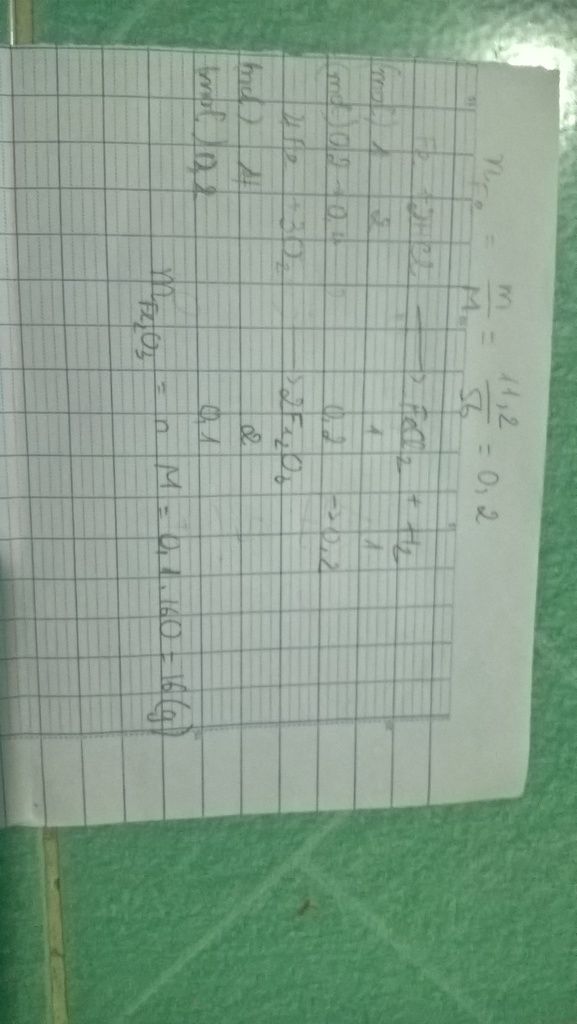 n Fe = m / M = 11,2 / 56 = 0,2
Fe + 2HCl → FeCl2 + H2
(mol) 1 2 1 1
(mol) 0,2 → 0,4 0,2 → 0,2
4Fe + 3O2 → 2Fe2O3
(mol) 4 2
(mol) 0,2 0,1
m Fe2O3 = n . M = 0,1 . 160 = 16 (g)